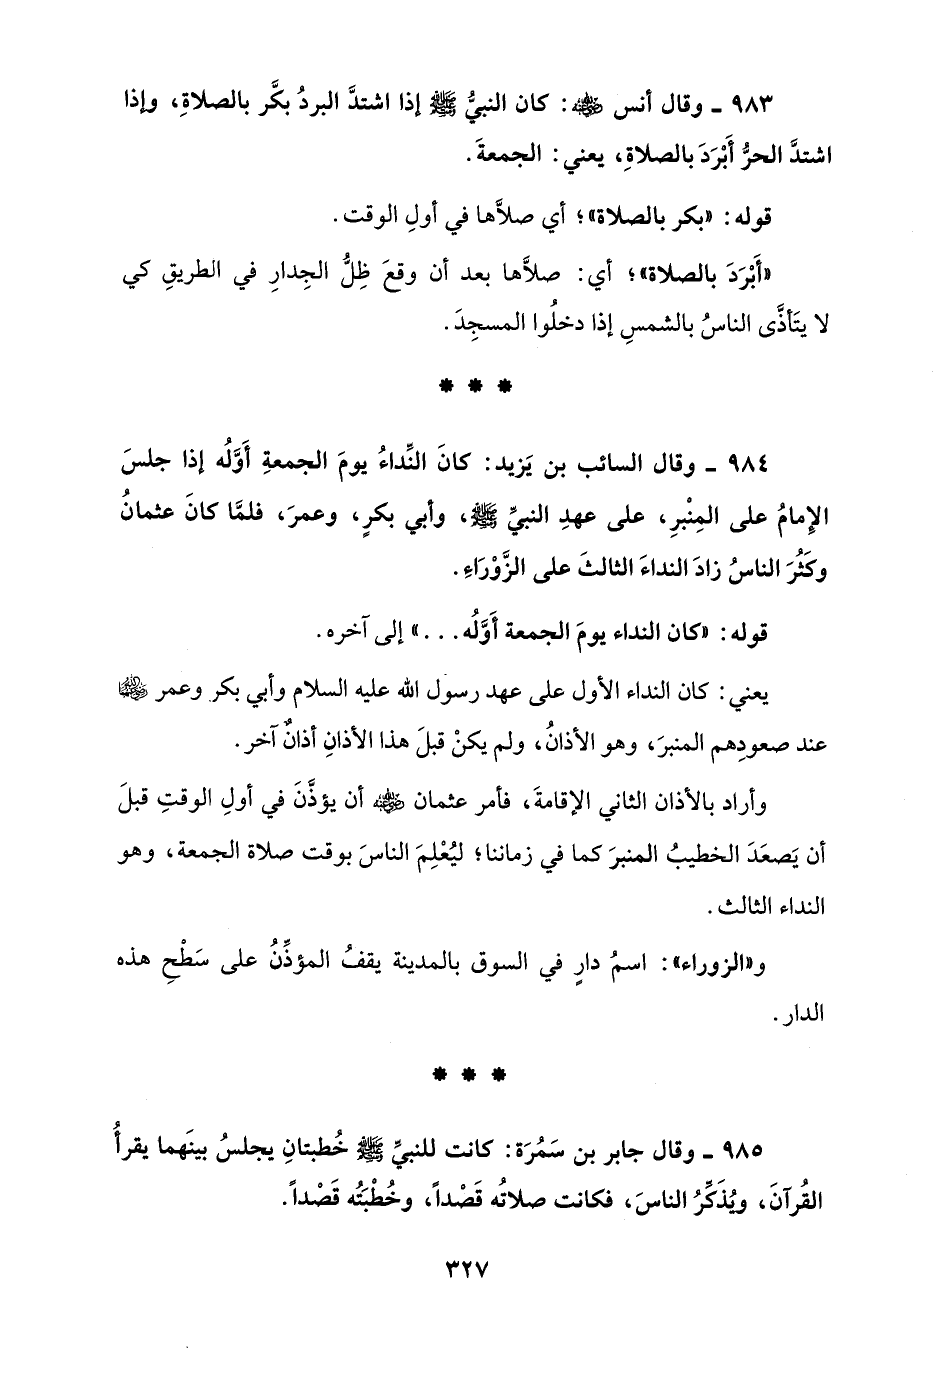 ٩٨٣ ـ وقال أنس ﷺ: كان النبيُّ ﷺ إذا اشتدَّ البردُ بكَّر بالصلاةِ، وإذا
اشتدَّ الحرُّ أَبْرَدَ بالصلاةِ، يعني: الجمعةَ.
قوله: «بكر بالصلاة»؛ أي صلاَّها في أولِ الوقت.
«أَبْرَدَ بالصلاة»؛ أي: صلاَّها بعد أن وقعَ ظِلُّ الجِدارِ في الطريقِ كي
لا يتَأذَّى الناسُ بالشمسِ إذا دخلُوا المسجِدَ.
* * *
٩٨٤ ـ وقال السائب بن يَزيد: كانَ النِّداءُ يومَ الجمعةِ أوَّلُه إذا جلسَ
الإمامُ على المِنْبرِ، على عهدِ النبيِّ ﷺ، وأبي بكرٍ، وعمرَ، فلمَّا كانَ عثمانُ
وكَثُرَ الناسُ زادَ النداءَ الثالثَ على الزَّوْرَاءِ.
قوله: «كان النداء يومَ الجمعة أوَّلُه...» إلى آخره.
يعني: كان النداء الأول على عهد رسول الله عليه السلام وأبي بكر وعمر ﵄
عند صعودِهم المنبرَ، وهو الأذانُ، ولم يكنْ قبلَ هذا الأذانِ أذانٌ آخر.
وأراد بالأذان الثاني الإقامةَ، فأمر عثمان ﵁ أن يؤذَّنَ في أولِ الوقتِ قبلَ
أن يَصعَدَ الخطيبُ المنبرَ كما في زماننا؛ ليُعْلِمَ الناسَ بوقت صلاة الجمعة، وهو
النداء الثالث.
و«الزوراء»: اسمُ دارٍ في السوق بالمدينة يقفُ المؤذِّنُ على سَطْحِ هذه
الدار.
* * *
٩٨٥ ـ وقال جابر بن سَمُرَة: كانت للنبيِّ ﷺ خُطبتانِ يجلسُ بينَهما يقرأُ
القُرآنَ، ويُذَكِّرُ الناسَ، فكانت صلاتُه قَصْداً، وخُطْبَتُه قَصْداً.
٣٢٧